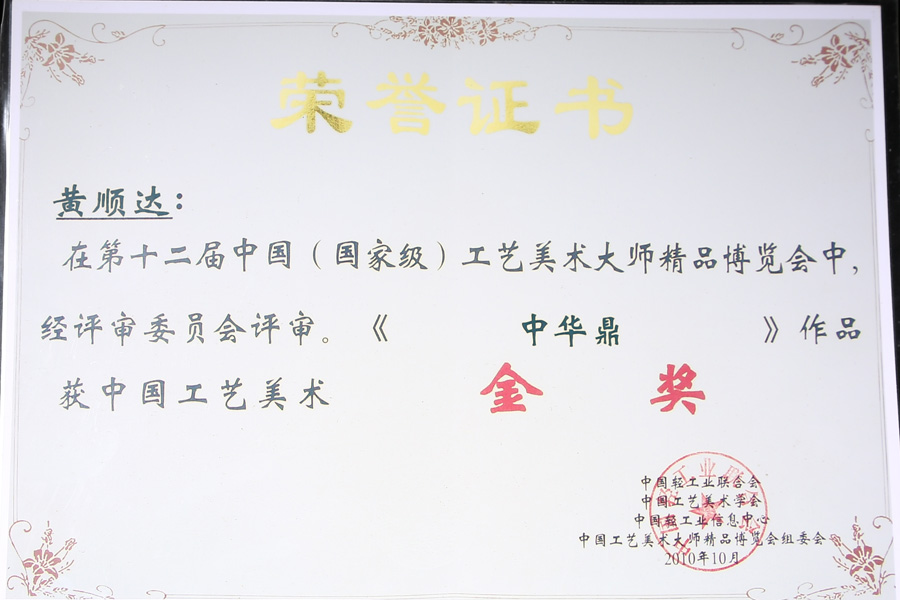 荣誉证书
黄顺达：
在第十二届中国（国家级）工艺美术大师精品博览会中，
经评审委员会评审。《 中华鼎 》作品
获中国工艺美术 金 奖
中国轻工业联合会
中国工艺美术学会
中国轻工业信息中心
中国工艺美术大师精品博览会组委会
2010年10月